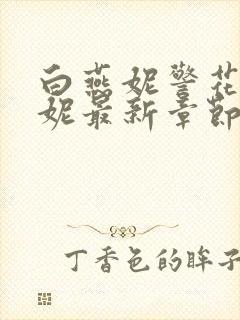 白燕妮警花
妮最新章節
丁香色的眸子